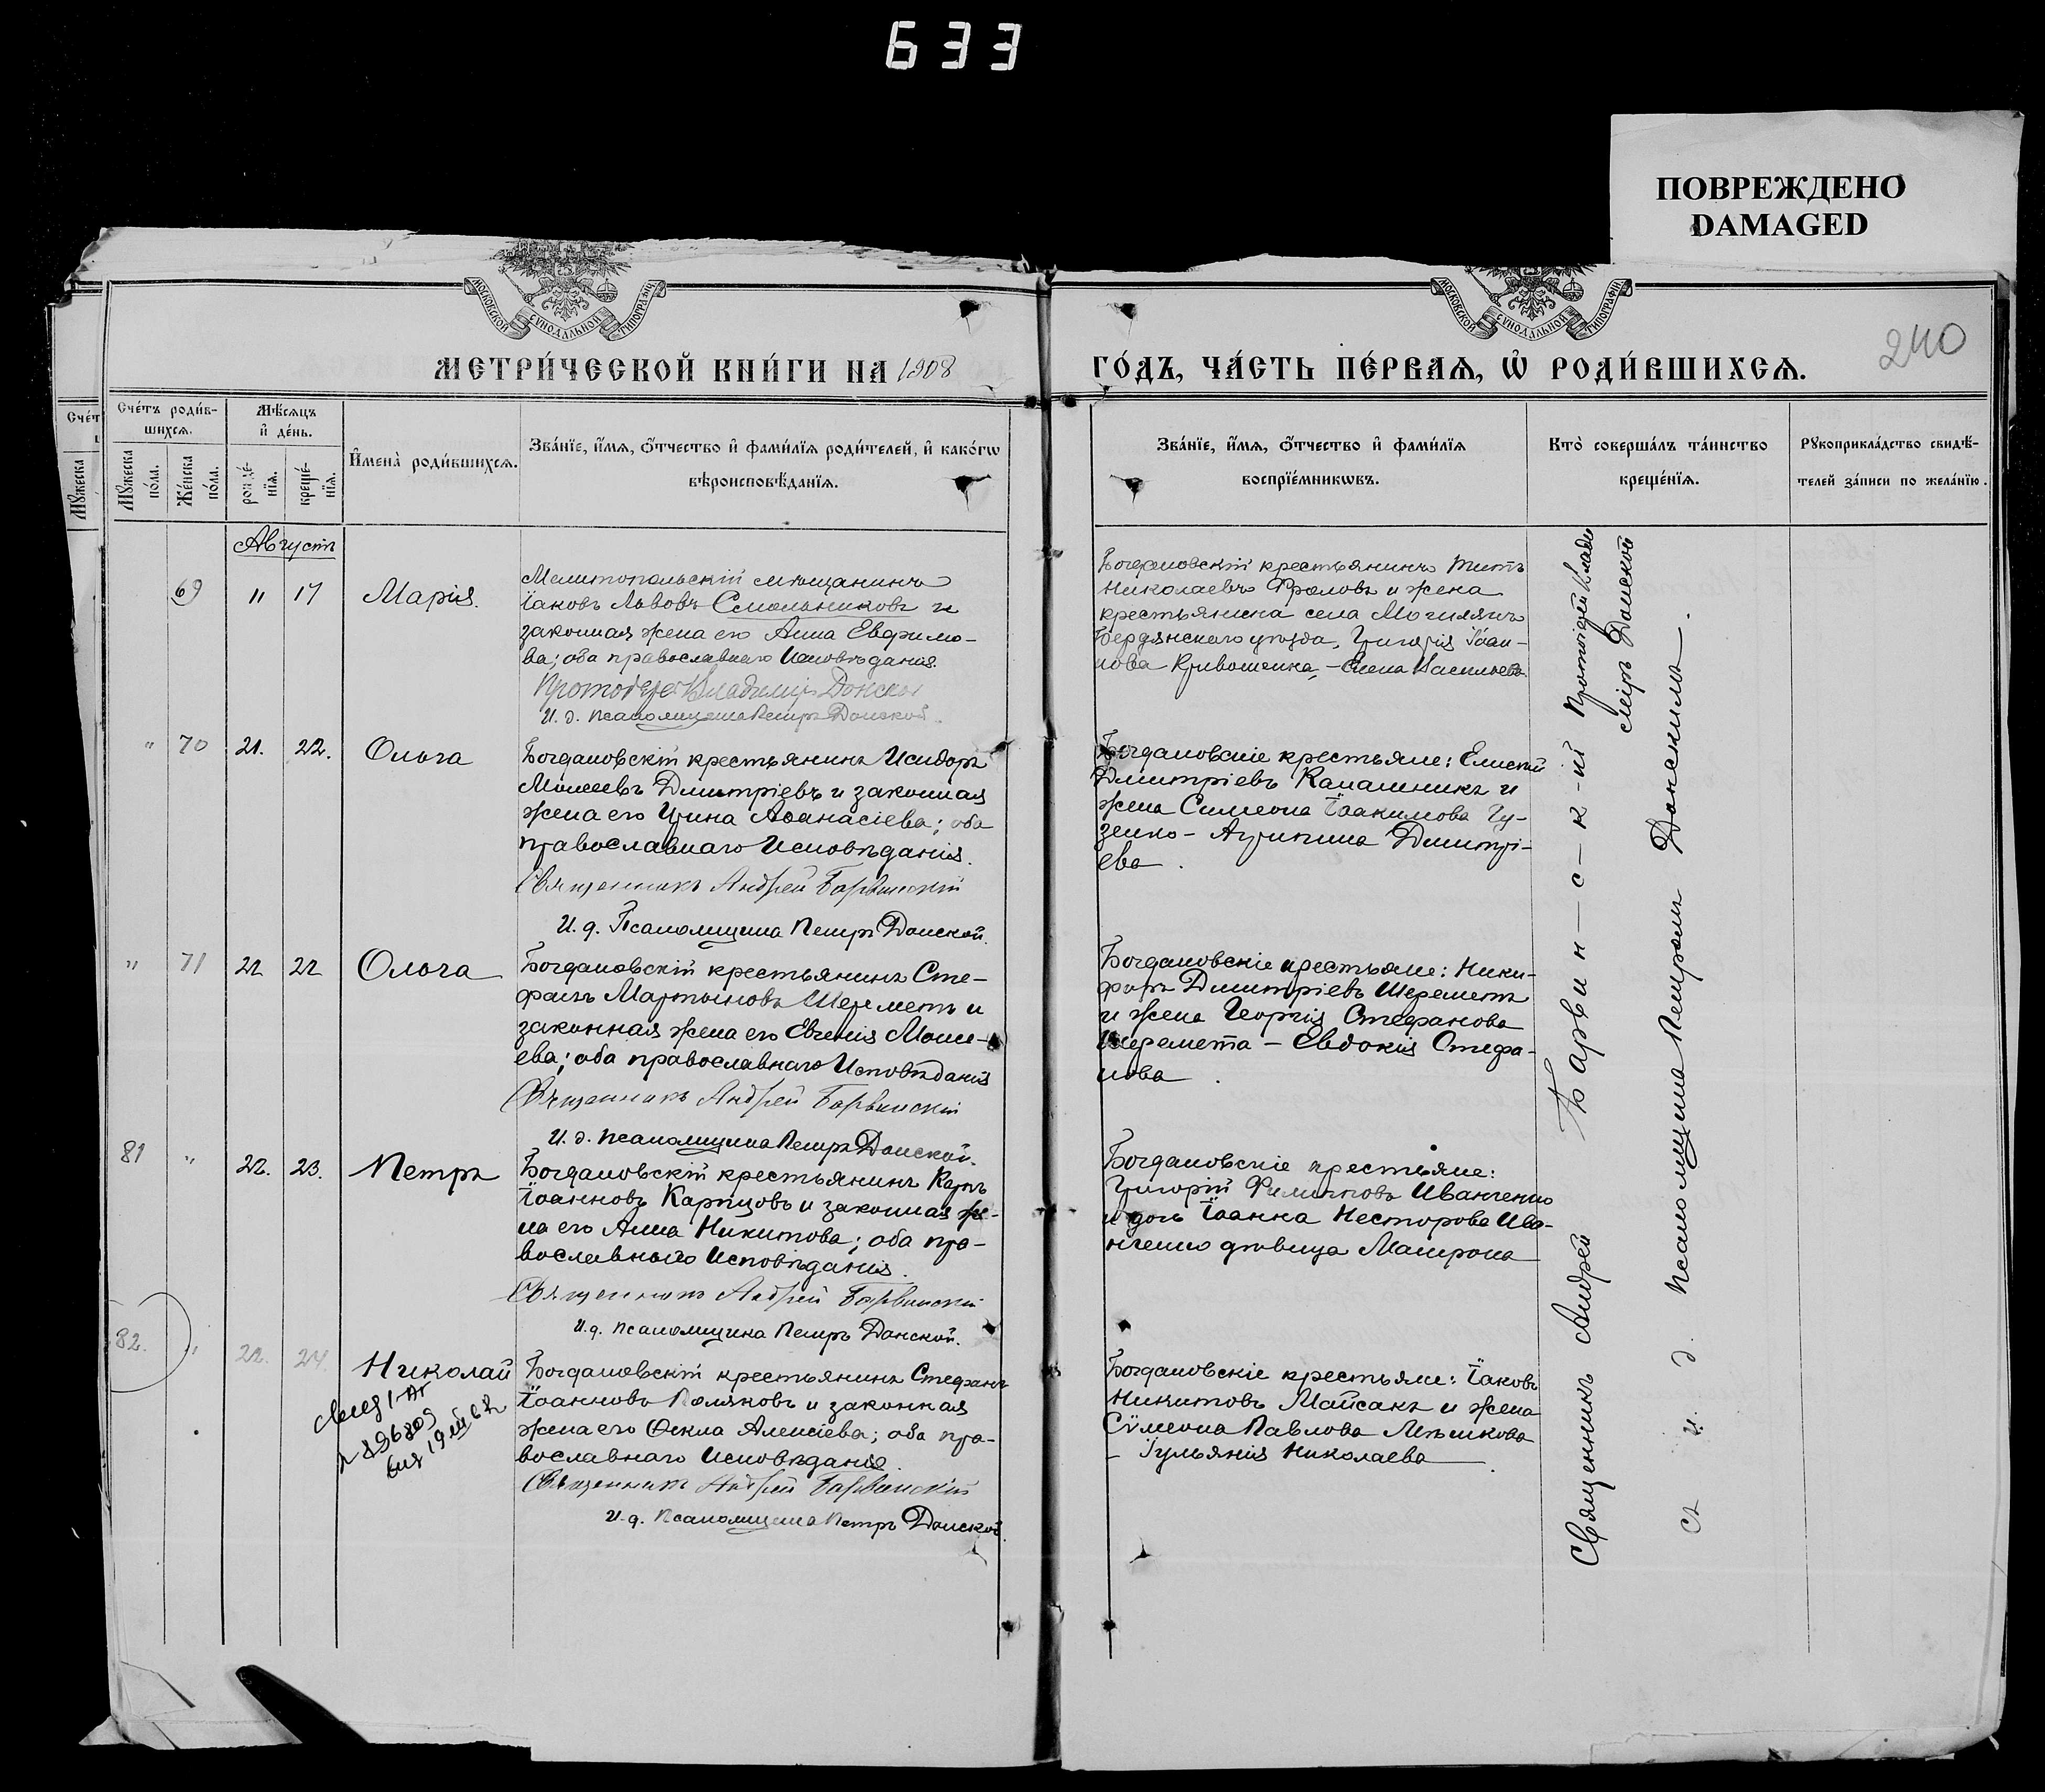 633
ПОВРЕЖДЕНО
DAMAGED
МОСКОВСКОЙ СѴНОДАЛЬНОЙ ТИПОГРАФІИ
МОСКОВСКОЙ СѴНОДАЛЬНОЙ ТИПОГРАФІИ
240
МЕТРИ́ЧЕСКОЙ КНИ́ГИ НА 1908
ГО́ДЪ, ЧА́СТЬ ПЕ́РВАѦ, Ѡ҆ РОДИ́ВШИХСѦ.
Счéтъ роди́в-
шихсѧ.
Мꙋ́жеска по́ла.
Же́нска по́ла.
Мѣ́сѧцъ
и҆ де́нь.
рожде́-
нїѧ.
креще́-
нїѧ.
И҆мена̀ роди́вшихсѧ.
Зва́нїе, и҆́мѧ, ѻ҆́тчество и҆ фами́лїѧ роди́телей, и҆ како́гѡ
вѣроисповѣ́данїѧ.
Зва́нїе, и҆́мѧ, ѻ҆́тчество и҆ фами́лїѧ
воспрїе́мникѡвъ.
Кто̀ соверша́лъ та́инство
креще́нїѧ.
Рꙋкоприкла́дство свидѣ́-
телей за́писи по жела́нїю.
Августъ
69 11 17 Марія.
Мелитопольскій мѣщанинъ
Іаковъ Львовъ Смольниковъ и
законная жена его Анна Евфимо-
ва; оба православнаго Исповѣданія.
Протоіерей Владиміръ Донской
И. д. псаломщика Петръ Донской.
Богдановскій крестьянинъ Титъ
Николаевъ Фроловъ и жена
крестьянина села
Бердянскаго уѣзда, Григорія Іоан-
нова Кривошенка, – Елена Васильева
" 70 21. 22. Ольга
Богдановскій крестьянинъ Исидоръ
Моисеевъ Дмитріевъ и законная
жена его Ирина Аѳанасіева; оба
православнаго Исповѣданія.
Священникъ Андрей Барвинскій
И. д. Псаломщика Петръ Донской.
Богдановскіе крестьяне: Елисей
Дмитріевъ Калашникъ и
жена Симеона Іоакимова Гу-
зенко – Агрипина Дмитрі-
ева.
" 71 22 22 Ольга
Богдановскій крестьянинъ Сте-
фанъ Мартыновъ Шереметъ и
законная жена его Евгенія Моисе-
ева; оба православнаго Исповѣданія
Священникъ Андрей Барвинскій
И. д. псаломщика Петръ Донской.
Богдановскіе крестьяне: Ники-
форъ Дмитріевъ Шереметъ
и жена Георгія Стефанова
Шеремета – Евдокія Стефа-
нова.
81 " 22. 23. Петръ
Богдановскій крестьянинъ Карпъ
Іоанновъ Карпцовъ и законная же-
на его Анна Никитова; оба пра-
вославнаго Исповѣданія.
Священникъ Андрей Барвинскій
И. д. псаломщика Петръ Донской.
Богдановскіе крестьяне:
Григорій Филипповъ Иванченко
и дочь Іоанна Несторова Ива-
нченко дѣвица Матрона
82. " 22. 24. Николай
Богдановскій крестьянинъ Стефанъ
Іоанновъ Поляковъ и законная
жена его Ѳекла Алексіева; оба пра-
вославнаго Исповѣданія.
Священникъ Андрей Барвинскій
И. д. Псаломщика Петръ Донской.
Богдановскіе крестьяне: Іаковъ
Никитовъ Майсакъ и жена
Сѵмеона Павлова Мѣшкова
– Іульянія Николаева.
Протоіерей Влади
міръ Донской
Священникъ Андрей Барвин–с–к–ій
съ и. д. псаломщика Петромъ Донскимъ.